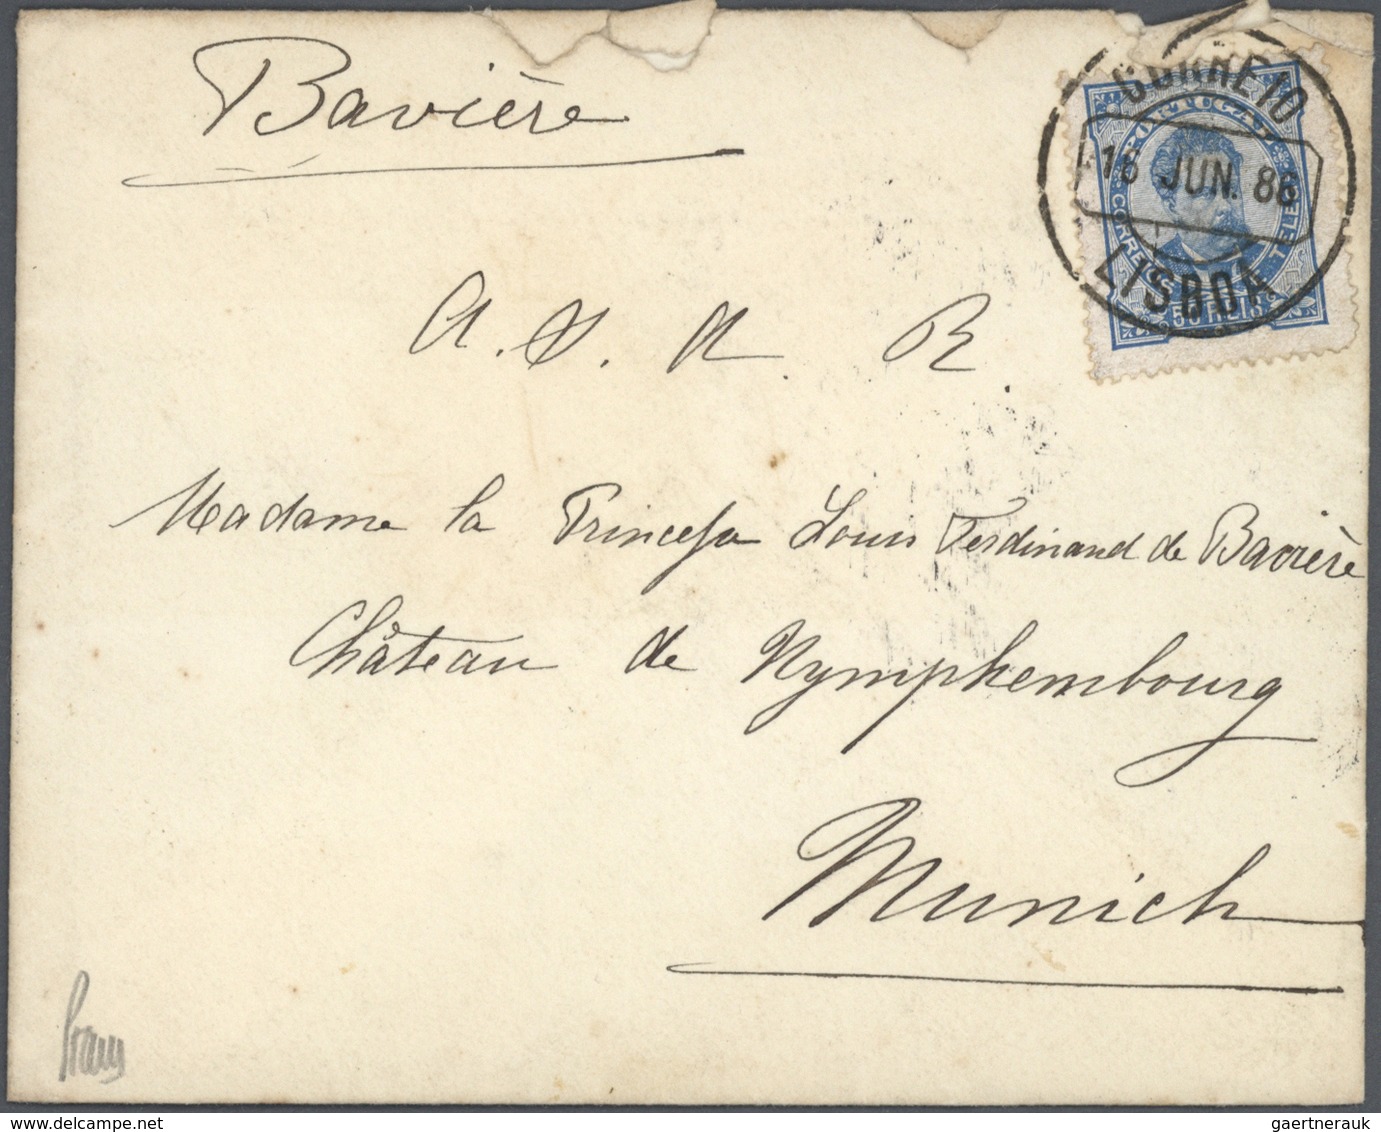 Bavière
CORREIO
18 JUN. 86
LISBOA
PORTUGAL
CORREIOS
TELE
50 REIS
A. S. A. R.
Madame la Princesse Louis Ferdinand de Bavière
Château de Nymphembourg
Munich
www.delcampe.net
gaertnerauk